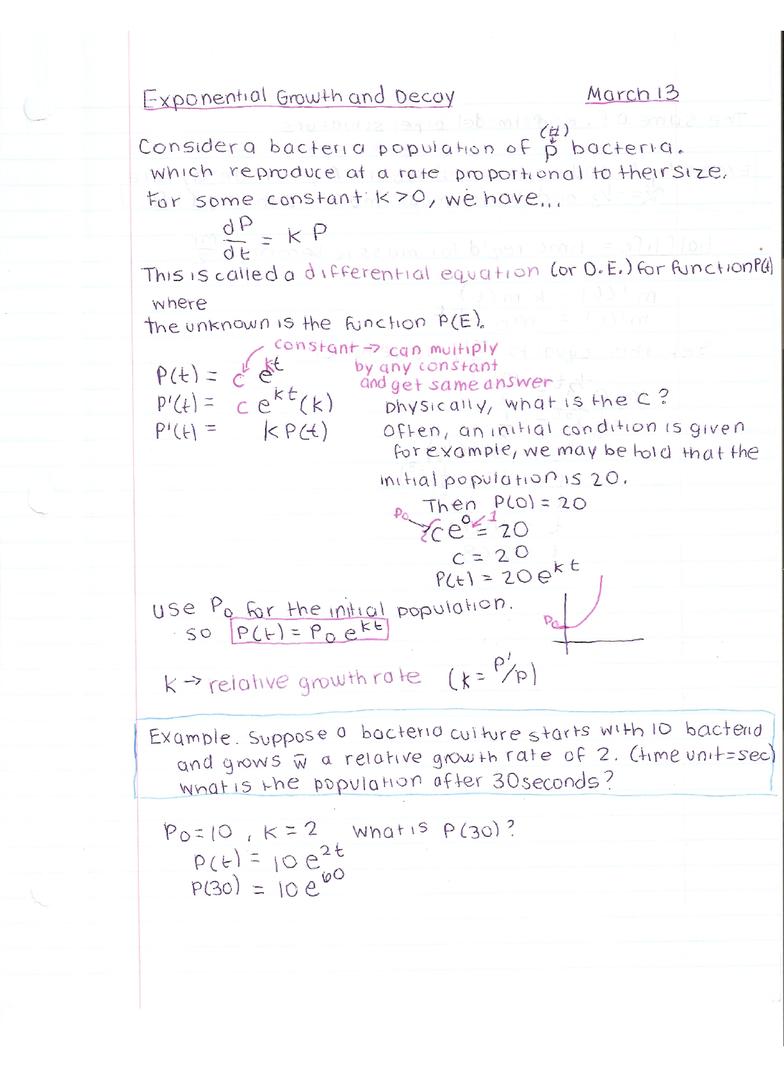 Exponential Growth and Decay March 13
(#)
Consider a bacteria population of p bacteria.
which reproduce at a rate proportional to their size.
For some constant k > 0, we have...
dP/dt = k P
This is called a differential equation (or D.E.) for function P(t)
where
the unknown is the function P(E).
constant → can multiply
by any constant
and get same answer
P(t) = c e^kt
P'(t) = c e^kt (k)
P'(t) = k P(t)
physically, what is the C?
Often, an initial condition is given
for example, we may be told that the
initial population is 20.
Then P(0) = 20
P₀ 1
ce⁰ = 20
c = 20
P(t) = 20e^kt
use P₀ for the initial population.
so P(t) = P₀ e^kt
P₀
k → relative growth rate (k = P'/P)
Example. Suppose a bacteria culture starts with 10 bacteria
and grows w̄ a relative growth rate of 2. (time unit=sec)
What is the population after 30 seconds?
P₀=10, k=2 What is P(30)?
P(t) = 10 e^2t
P(30) = 10 e^60